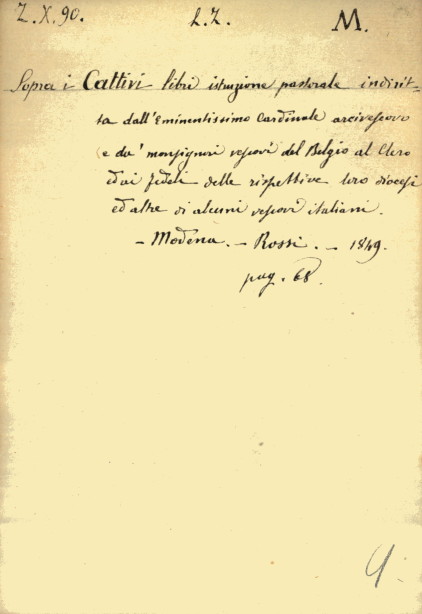 Z.X.90. L.Z. M.
Sopra i Cattivi libri istruzione pastorale indirit-
ta dall'Eminentissimo Cardinale arcivescovo
e da' monsignori vescovi del Belgio al Clero
ed ai fedeli delle rispettive loro diocesi
ed altre di alcuni vescovi italiani.
- Modena. - Rossi. - 1849.
pag. 68.